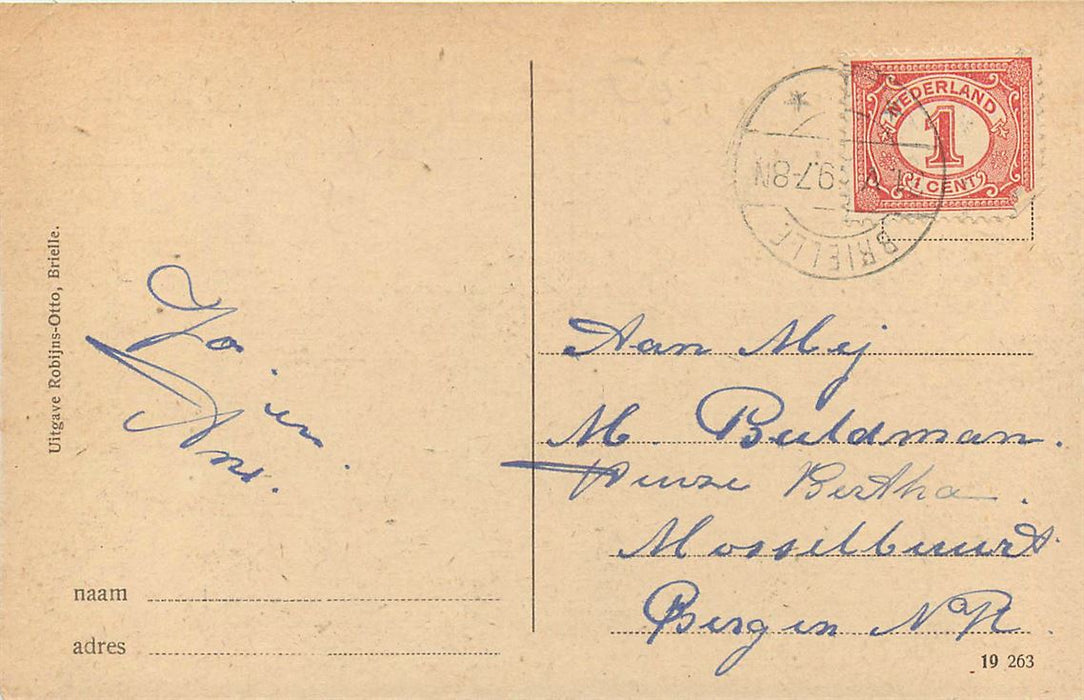 NEDERLAND
1
1 CENT
BRIELLE
7-8N
Uitgave Robijns-Otto, Brielle.
Jo en
An.
Aan Mej
M. Buldman.
Huize Bertha.
Mosselbuurt.
Bergen N.H.
naam
adres
19 263